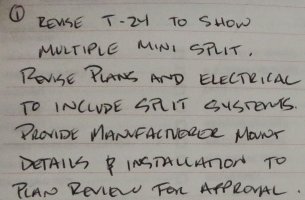 ① REVISE T-24 TO SHOW
MULTIPLE MINI SPLIT.
REVISE PLANS AND ELECTRICAL
TO INCLUDE SPLIT SYSTEMS.
PROVIDE MANUFACTUERER MOUNT
DETAILS & INSTALLATION TO
PLAN REVIEW FOR APPROVAL.